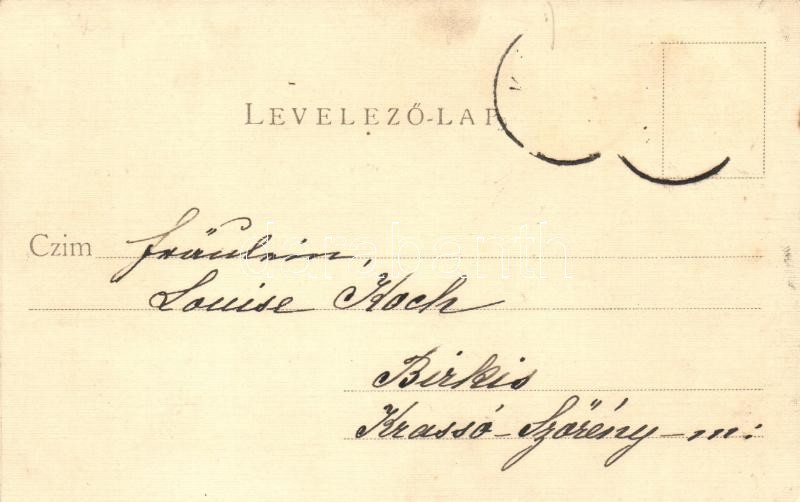 LEVELEZŐ-LAP
Czim Fräulein,
Louise Koch
Birkis
Krassó-Szörény-m: